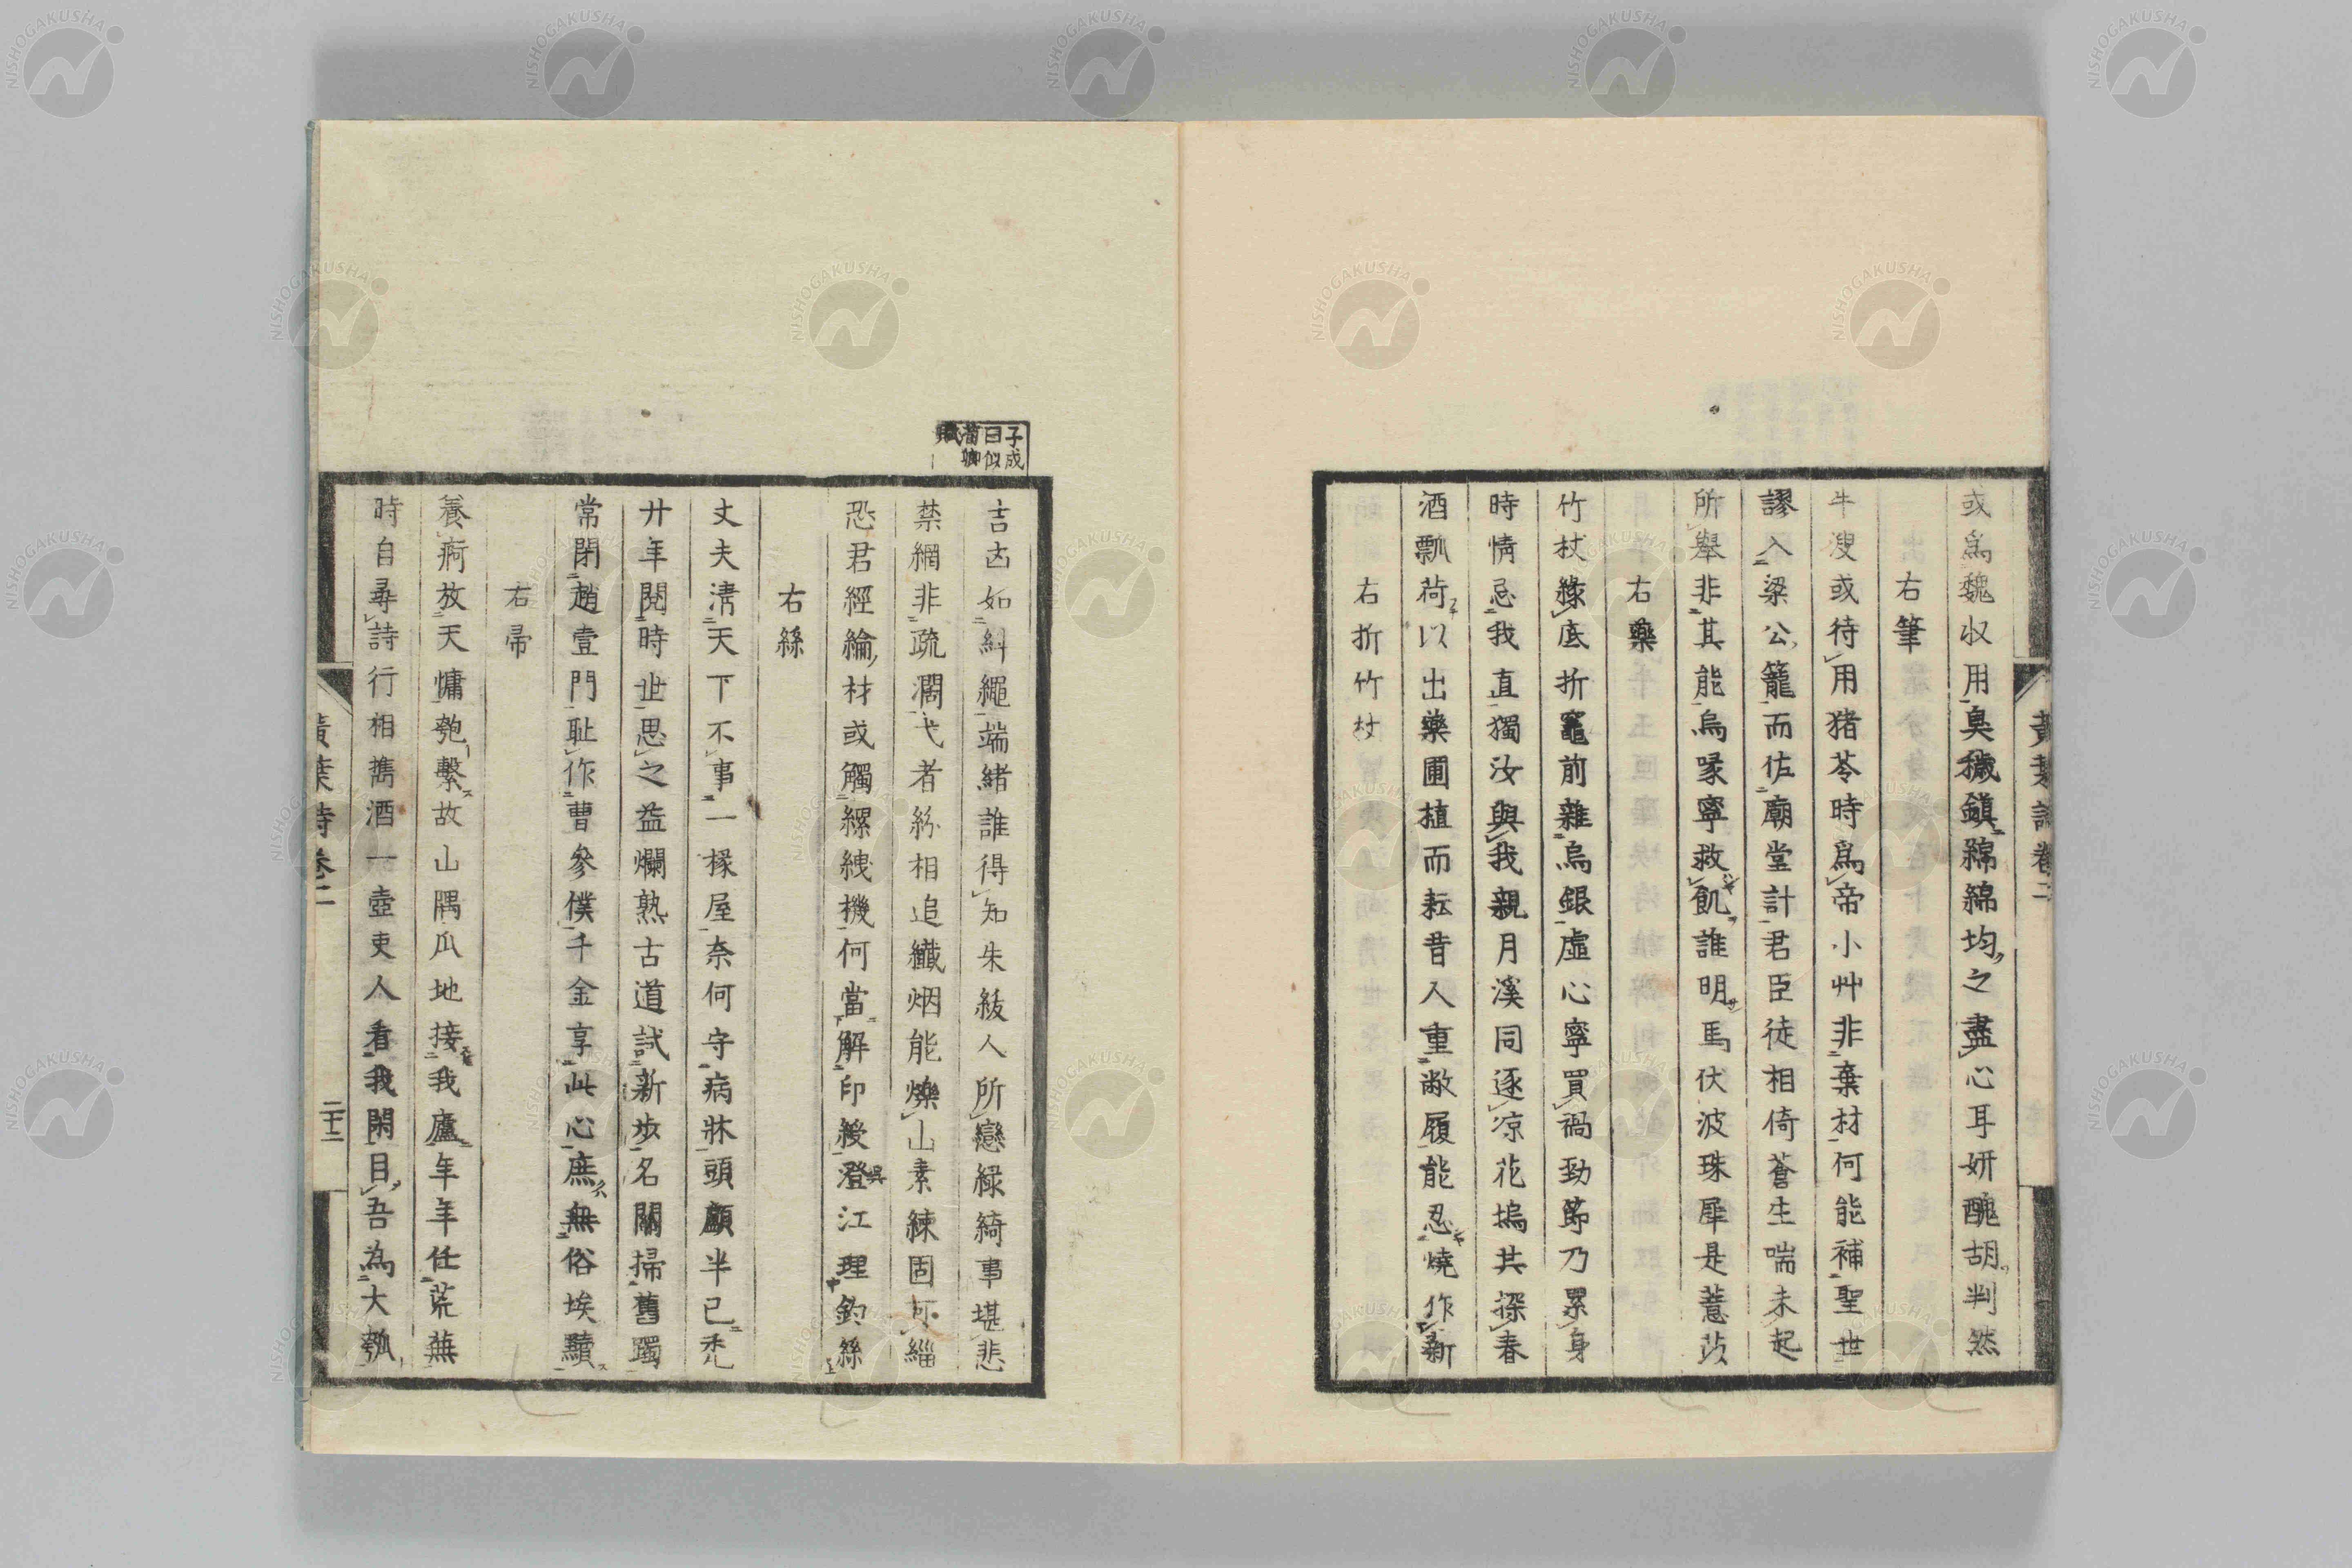 黃葉詩卷二
或爲魏収用臭穢鎮綿綿均之盡心耳妍醜胡判然
右筆
牛溲或待用猪苓時爲帝小艸非棄材何能補聖世
謬入梁公籠而佐廟堂計君臣徒相倚蒼生喘未起
所舉非其能烏喙寧救飢誰明馬伏波珠犀是薏苡
右藥
竹杖緣底折竈前雜烏銀虛心寧買禍勁節乃累身
時情忌我直獨汝與我親月溪同逐凉花塢共探春
酒瓢荷以出藥圃植而耘昔人重敝履能忍燒作薪
右折竹杖
子成
曰似
荀卿
賦
吉凶如糾繩端緒誰得知朱紱人所戀綠綺事堪悲
禁網非疏濶弋者紛相追纖烟能爍山素練固可緇
恐君經綸材或觸縲絏機何當解印綬澄江理釣絲
右絲
丈夫淸天下不事一椽屋奈何守病牀頭顱半已禿
廿年閱時世思之益爛熟古道試新步名關掃舊躅
常閉趙壹門耻作曹參僕千金享此心庶無俗埃黷
右帚
養疴放天慵匏繫故山隅瓜地接我廬年年任荒蕪
時自尋詩行相携酒一壺吏人看我閑目吾為大瓠
黃葉詩卷二
二十二